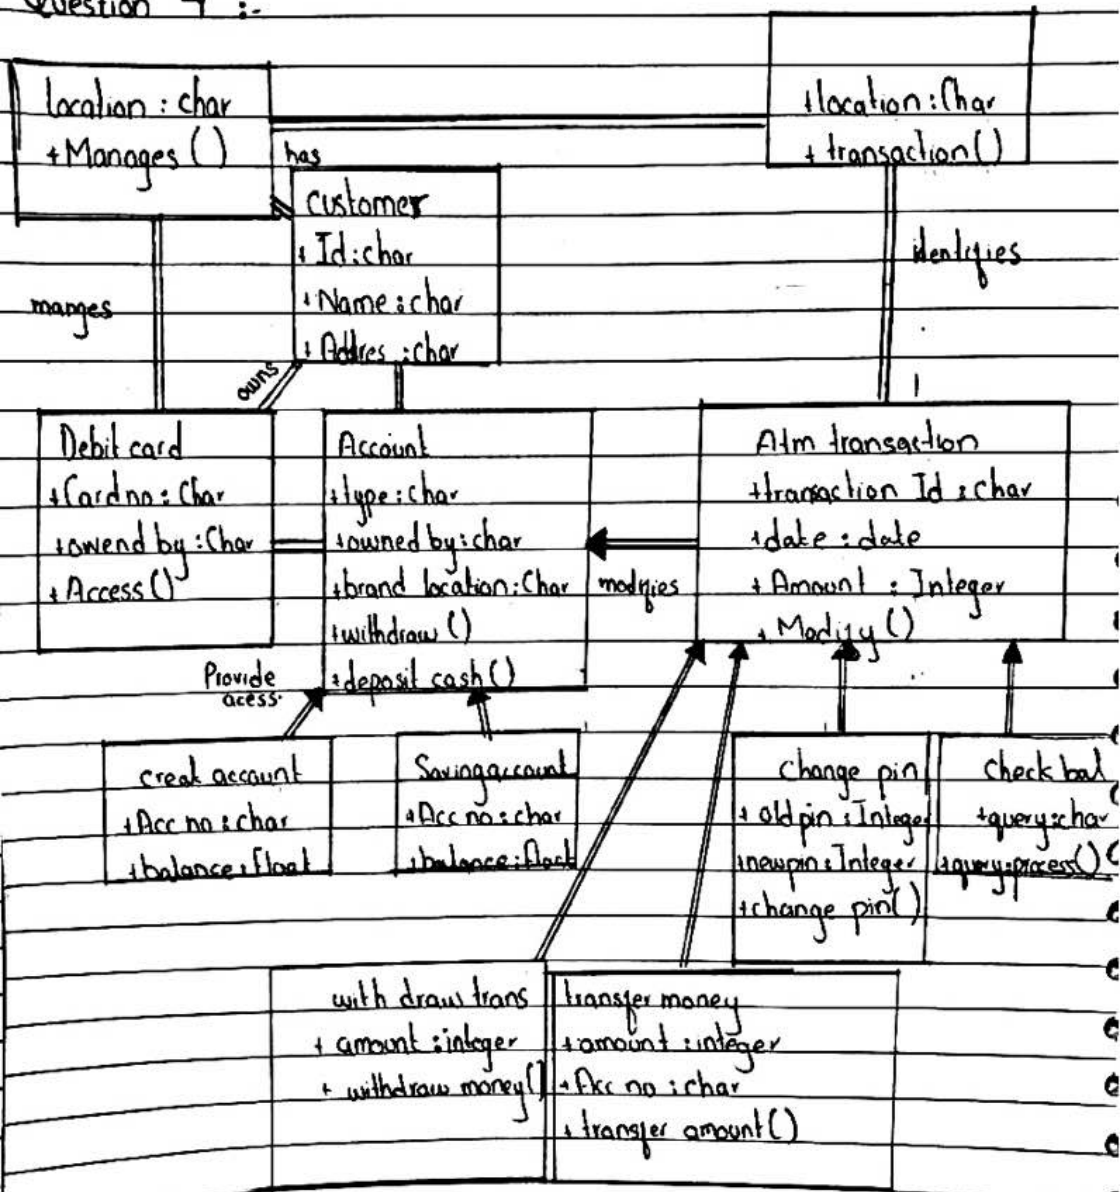 Question 7 :-
location : char
+ Manages ( )
+location : Char
+ transaction()
has
customer
+ Id : char
+ Name : char
+ Addres : char
identifies
manges
owns
Debit card
+Card no : Char
+owend by : Char
+ Access ()
Account
+type : char
+owned by : char
+brand location : Char
+withdraw ()
+deposit cash ()
modifies
Atm transaction
+transaction Id : char
+date : date
+ Amount : Integer
+ Modify ()
Provide
acess
creat account
+Acc no : char
+balance : float
Saving account
+Acc no : char
+balance : float
change pin
+ old pin : Intege
+newpin : Integer
+change pin()
Check bal
+query : char
+query : process()
with draw trans
+ amount : integer
+ withdraw money()
transfer money
+amount : integer
+Acc no : char
+ transfer amount()